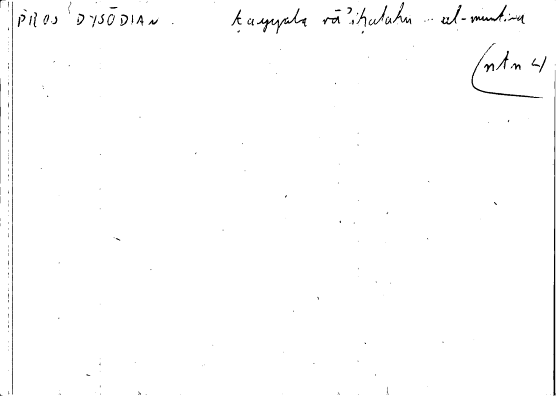 PROS DYSŌDIAN. ṭayyaba rā'iḥatahu .. al-muntina
(ntn 4)